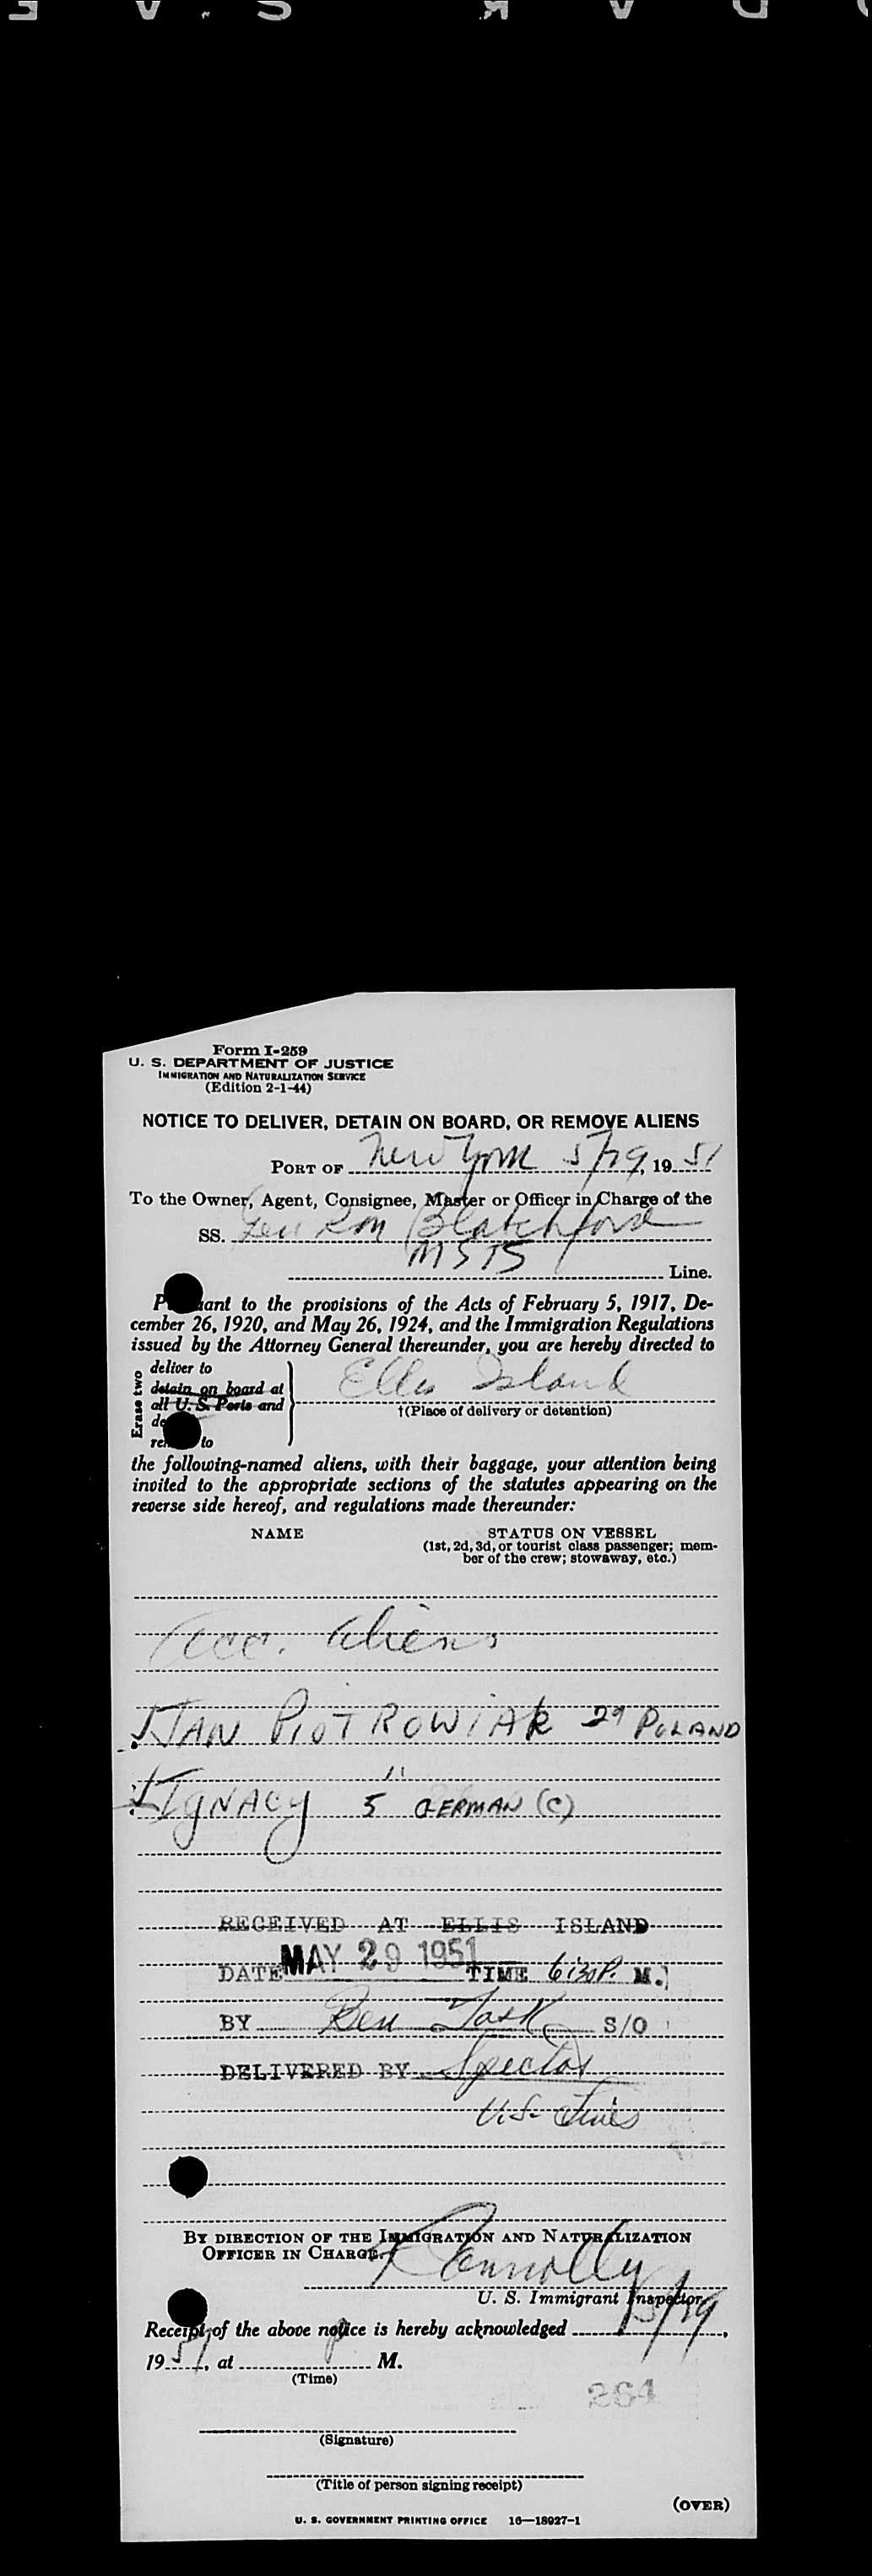 Form I-259
U. S. DEPARTMENT OF JUSTICE
IMMIGRATION AND NATURALIZATION SERVICE
(Edition 2-1-44)
NOTICE TO DELIVER, DETAIN ON BOARD, OR REMOVE ALIENS
PORT OF New York 5/29, 19 51
To the Owner, Agent, Consignee, Master or Officer in Charge of the
SS. Gen R M Blatchford
MSTS
Line.
ant to the provisions of the Acts of February 5, 1917, De-
cember 26, 1920, and May 26, 1924, and the Immigration Regulations
issued by the Attorney General thereunder, you are hereby directed to
Erase two
deliver to
detain on board at
all U. S. Ports and
de
re to
Ellis Island
†(Place of delivery or detention)
the following-named aliens, with their baggage, your attention being
invited to the appropriate sections of the statutes appearing on the
reverse side hereof, and regulations made thereunder:
NAME STATUS ON VESSEL
(1st, 2d, 3d, or tourist class passenger; mem-
ber of the crew; stowaway, etc.)
Acc. Aliens
JAN PIOTROWIAK 29 POLAND
IGNACY " 5 GERMAN (C)
RECEIVED AT ELLIS ISLAND
DATE MAY 29 1951 TIME 6:30 P. M.
BY Ben Task S/O
DELIVERED BY Spector
U.S. Lines
BY DIRECTION OF THE IMMIGRATION AND NATURALIZATION
OFFICER IN CHARGE.
Connolly
U. S. Immigrant Inspector.
Receipt of the above notice is hereby acknowledged 5/29,
19 51, at M.
(Time)
264
(Signature)
(Title of person signing receipt)
(OVER)
U. S. GOVERNMENT PRINTING OFFICE 16—18927-1